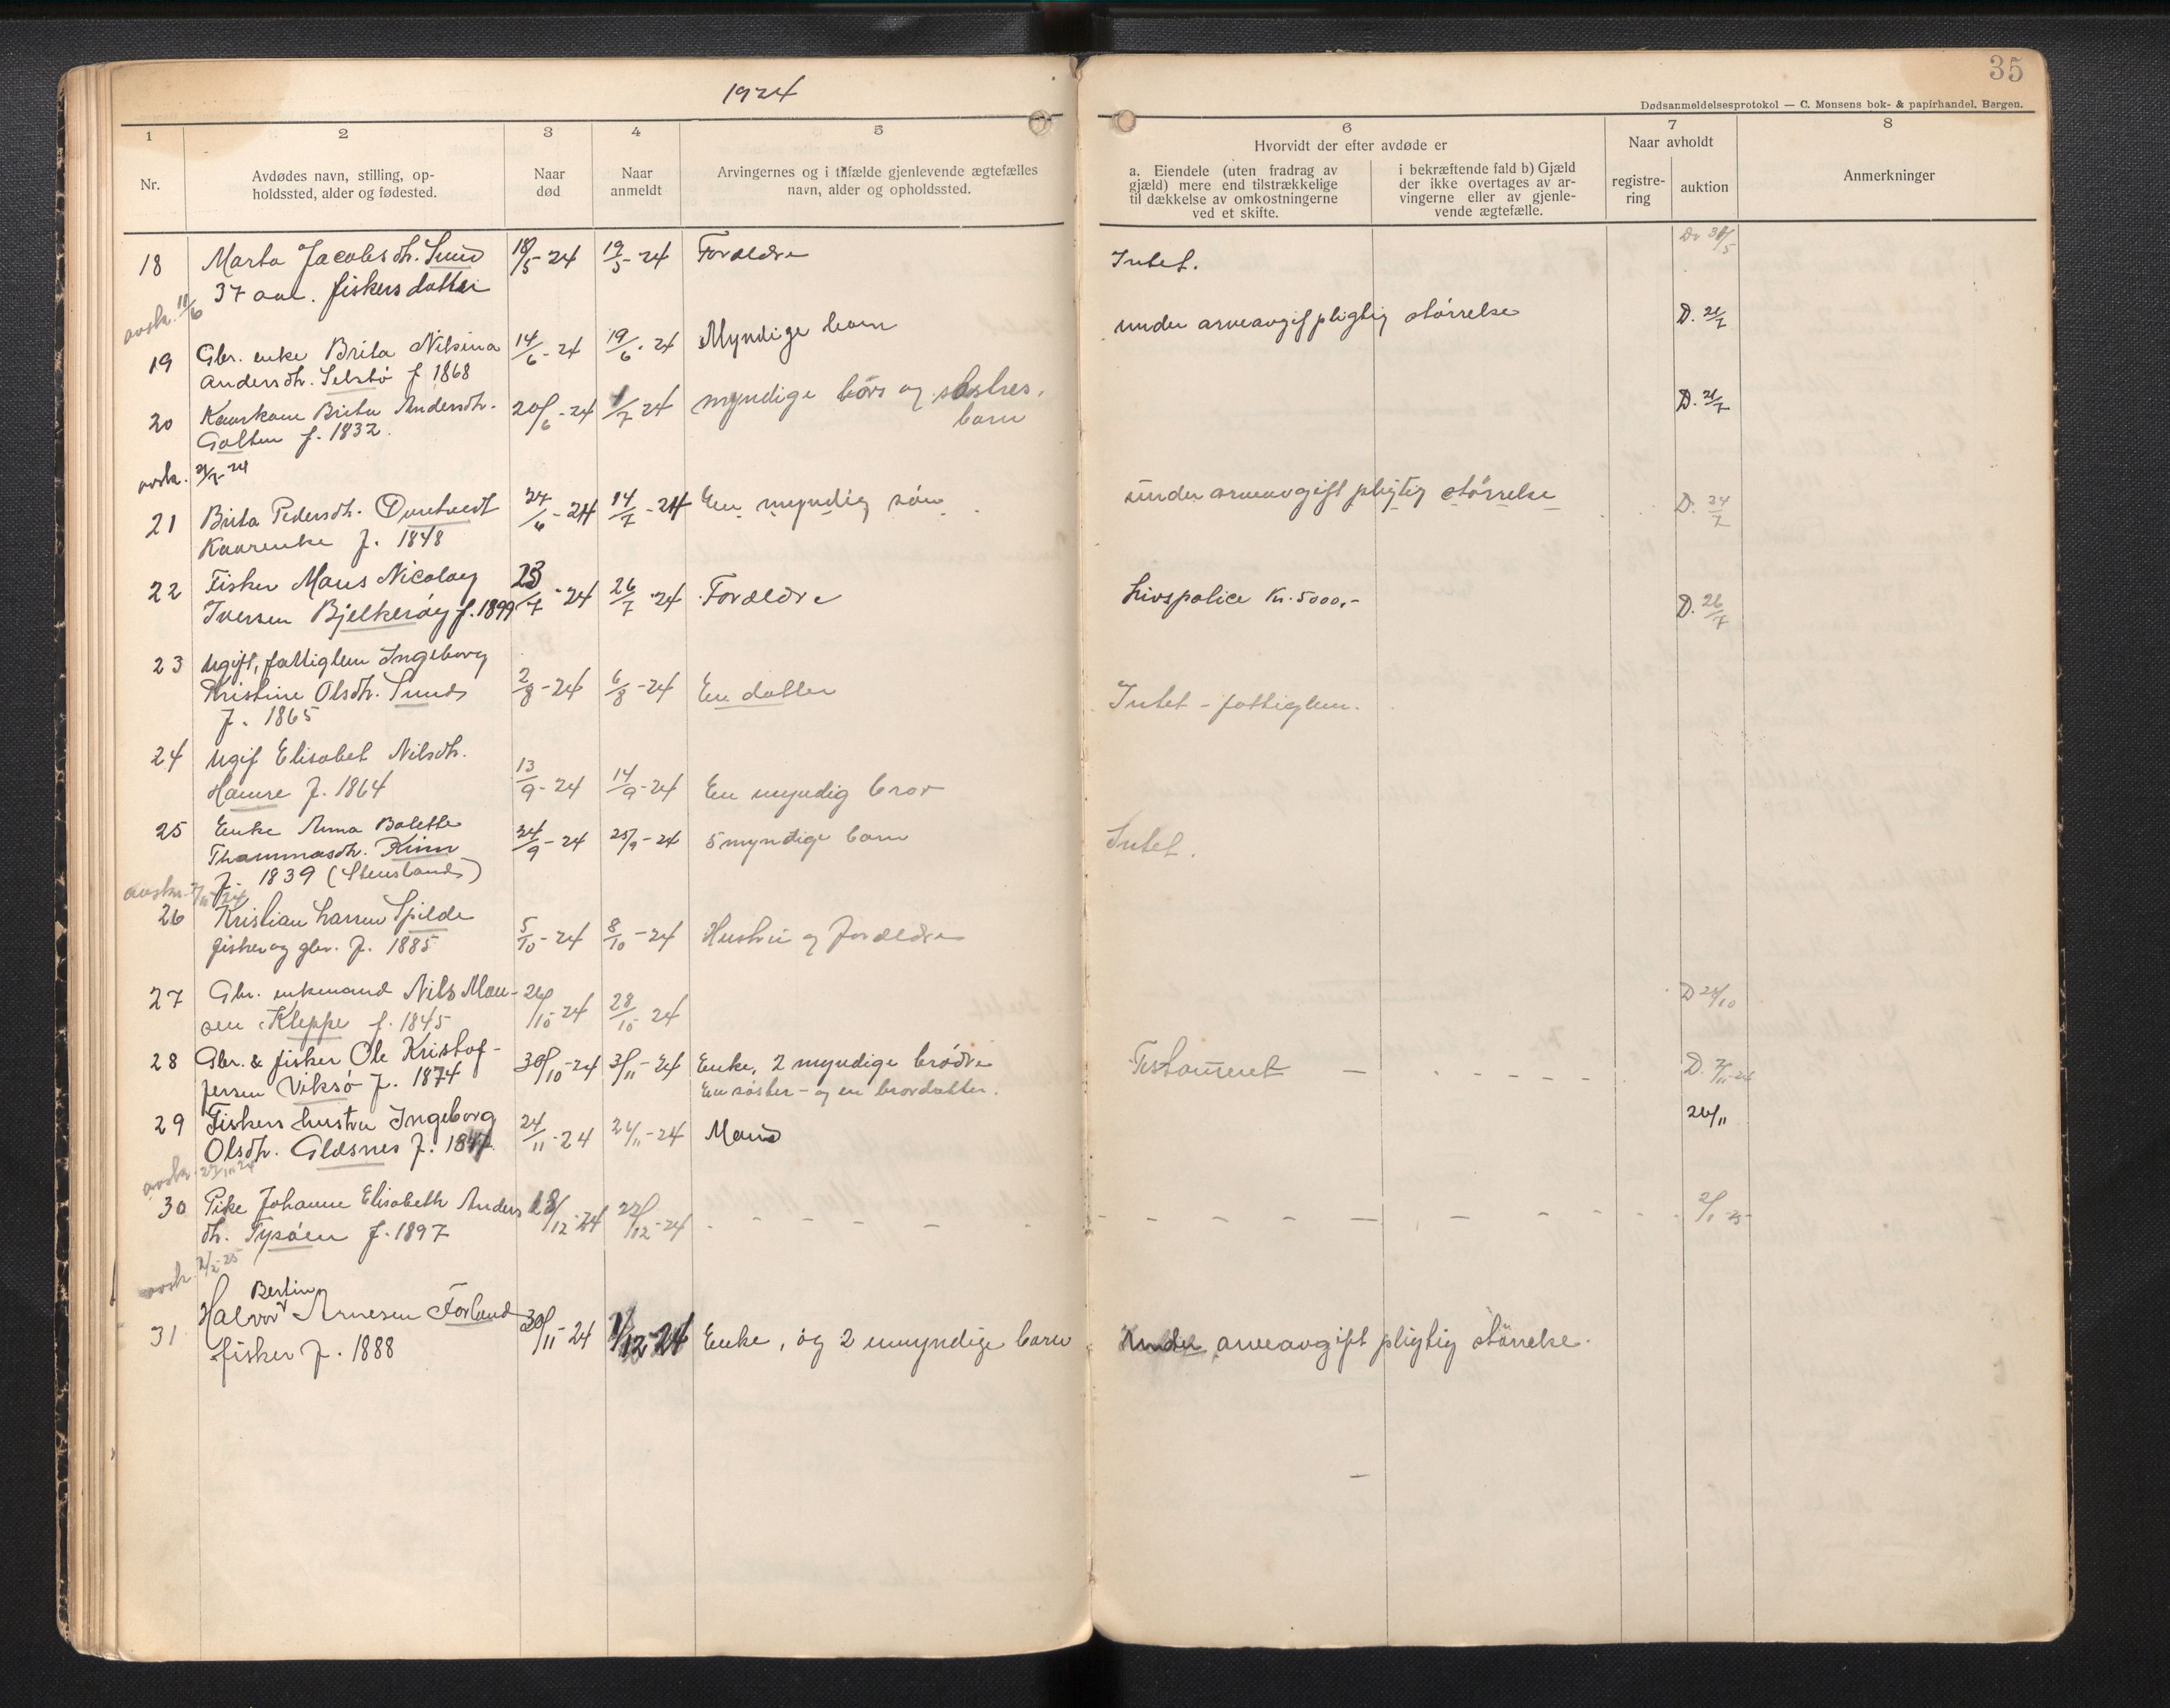 1924
35
Dødsanmeldelsesprotokol — C. Monsens bok- & papirhandel, Bergen.
1
2
3
4
5
6
7
8
Nr.
Avdødes navn, stilling, op-
holdssted, alder og fødested.
Naar
død
Naar
anmeldt
Arvingernes og i tilfælde gjenlevende ægtefælles
navn, alder og opholdssted.
Hvorvidt der efter avdøde er
a. Eiendele (uten fradrag av
gjæld) mere end tilstrækkelige
til dækkelse av omkostningerne
ved et skifte.
i bekræftende fald b) Gjæld
der ikke overtages av ar-
vingerne eller av gjenle-
vende ægtefælle.
Naar avholdt
registre-
ring
auktion
Anmerkninger
18 Marta Jacobsdh. Sund 18/5-24 19/5-24 Forældre Intet.
37 aar. fiskersdatter
avsk. 11/6
19 Gbr. enke Brita Nilsina 14/6-24 19/6-24 Myndige barn under arveavgifpligtig størrelse D. 21/7
Andersdh. Selstø f 1868
20 Kaarkone Brita Andersdh. 20/6-24 1/7 24 myndige børs og søstres. D. 21/7
Golten f. 1832. barn
avsk. 21/7-24
21 Brita Pedersdh. Ovretvedt 24/6-24 14/7-24 En myndig søn under arveavgift pligtig størrelse D. 24/7
Kaarenke f. 1848
22 Fisker Mons Nicolay 23/7-24 26/7-24 Forældre Livspolice Kr. 5000,- D. 26/7
Iversen Bjelkerøy f. 1899
23 Ugift, fattiglem Ingeborg
Kristine Olsdh. Sund 2/8-24 6/8-24 En datter Intet - fattiglem.
f. 1865
24 Ugif Elisabet Nilsdh.
Hamre f. 1864 13/9-24 14/9-24 En myndig bror
25 Enke Anna Bolette 24/9-24 25/9-24 5 myndige barn Intet.
Thommasdh. Kinn
f. 1839 (Stensland)
avskr.
26 Kristian Larsen Spilde
fisker og gbr. f. 1885 5/10-24 8/10-24 Hustru og forældre
27 Gbr. enkemand Nils Mon- 26/10-24 28/10-24 D 28/10
sen Kleppe f. 1845
28 Gbr. & fisker Ole Kristof- 30/10-24 3/11-24 Enke, 2 myndige brødre Testament D.
fersen Viksø f. 1874 En søster - og en brordatter.
29 Fiskers hustru Ingeborg 24/11-24 26/11-24 Mand 26/11
Olsdh. Glæsnes f. 1847
avsk. 27/11-24
30 Pike Johanne Elisabeth Anders 18/12-24 22/12-24 2/1-25
dh. Tysøen f. 1897
avsk. 2/2-25
Bertin
31 Halvor Arnesen Forland 30/11-24 1/12-24 Enke, og 2 umyndige barn Under arveavgift pligtig størrelse.
fisker f. 1888